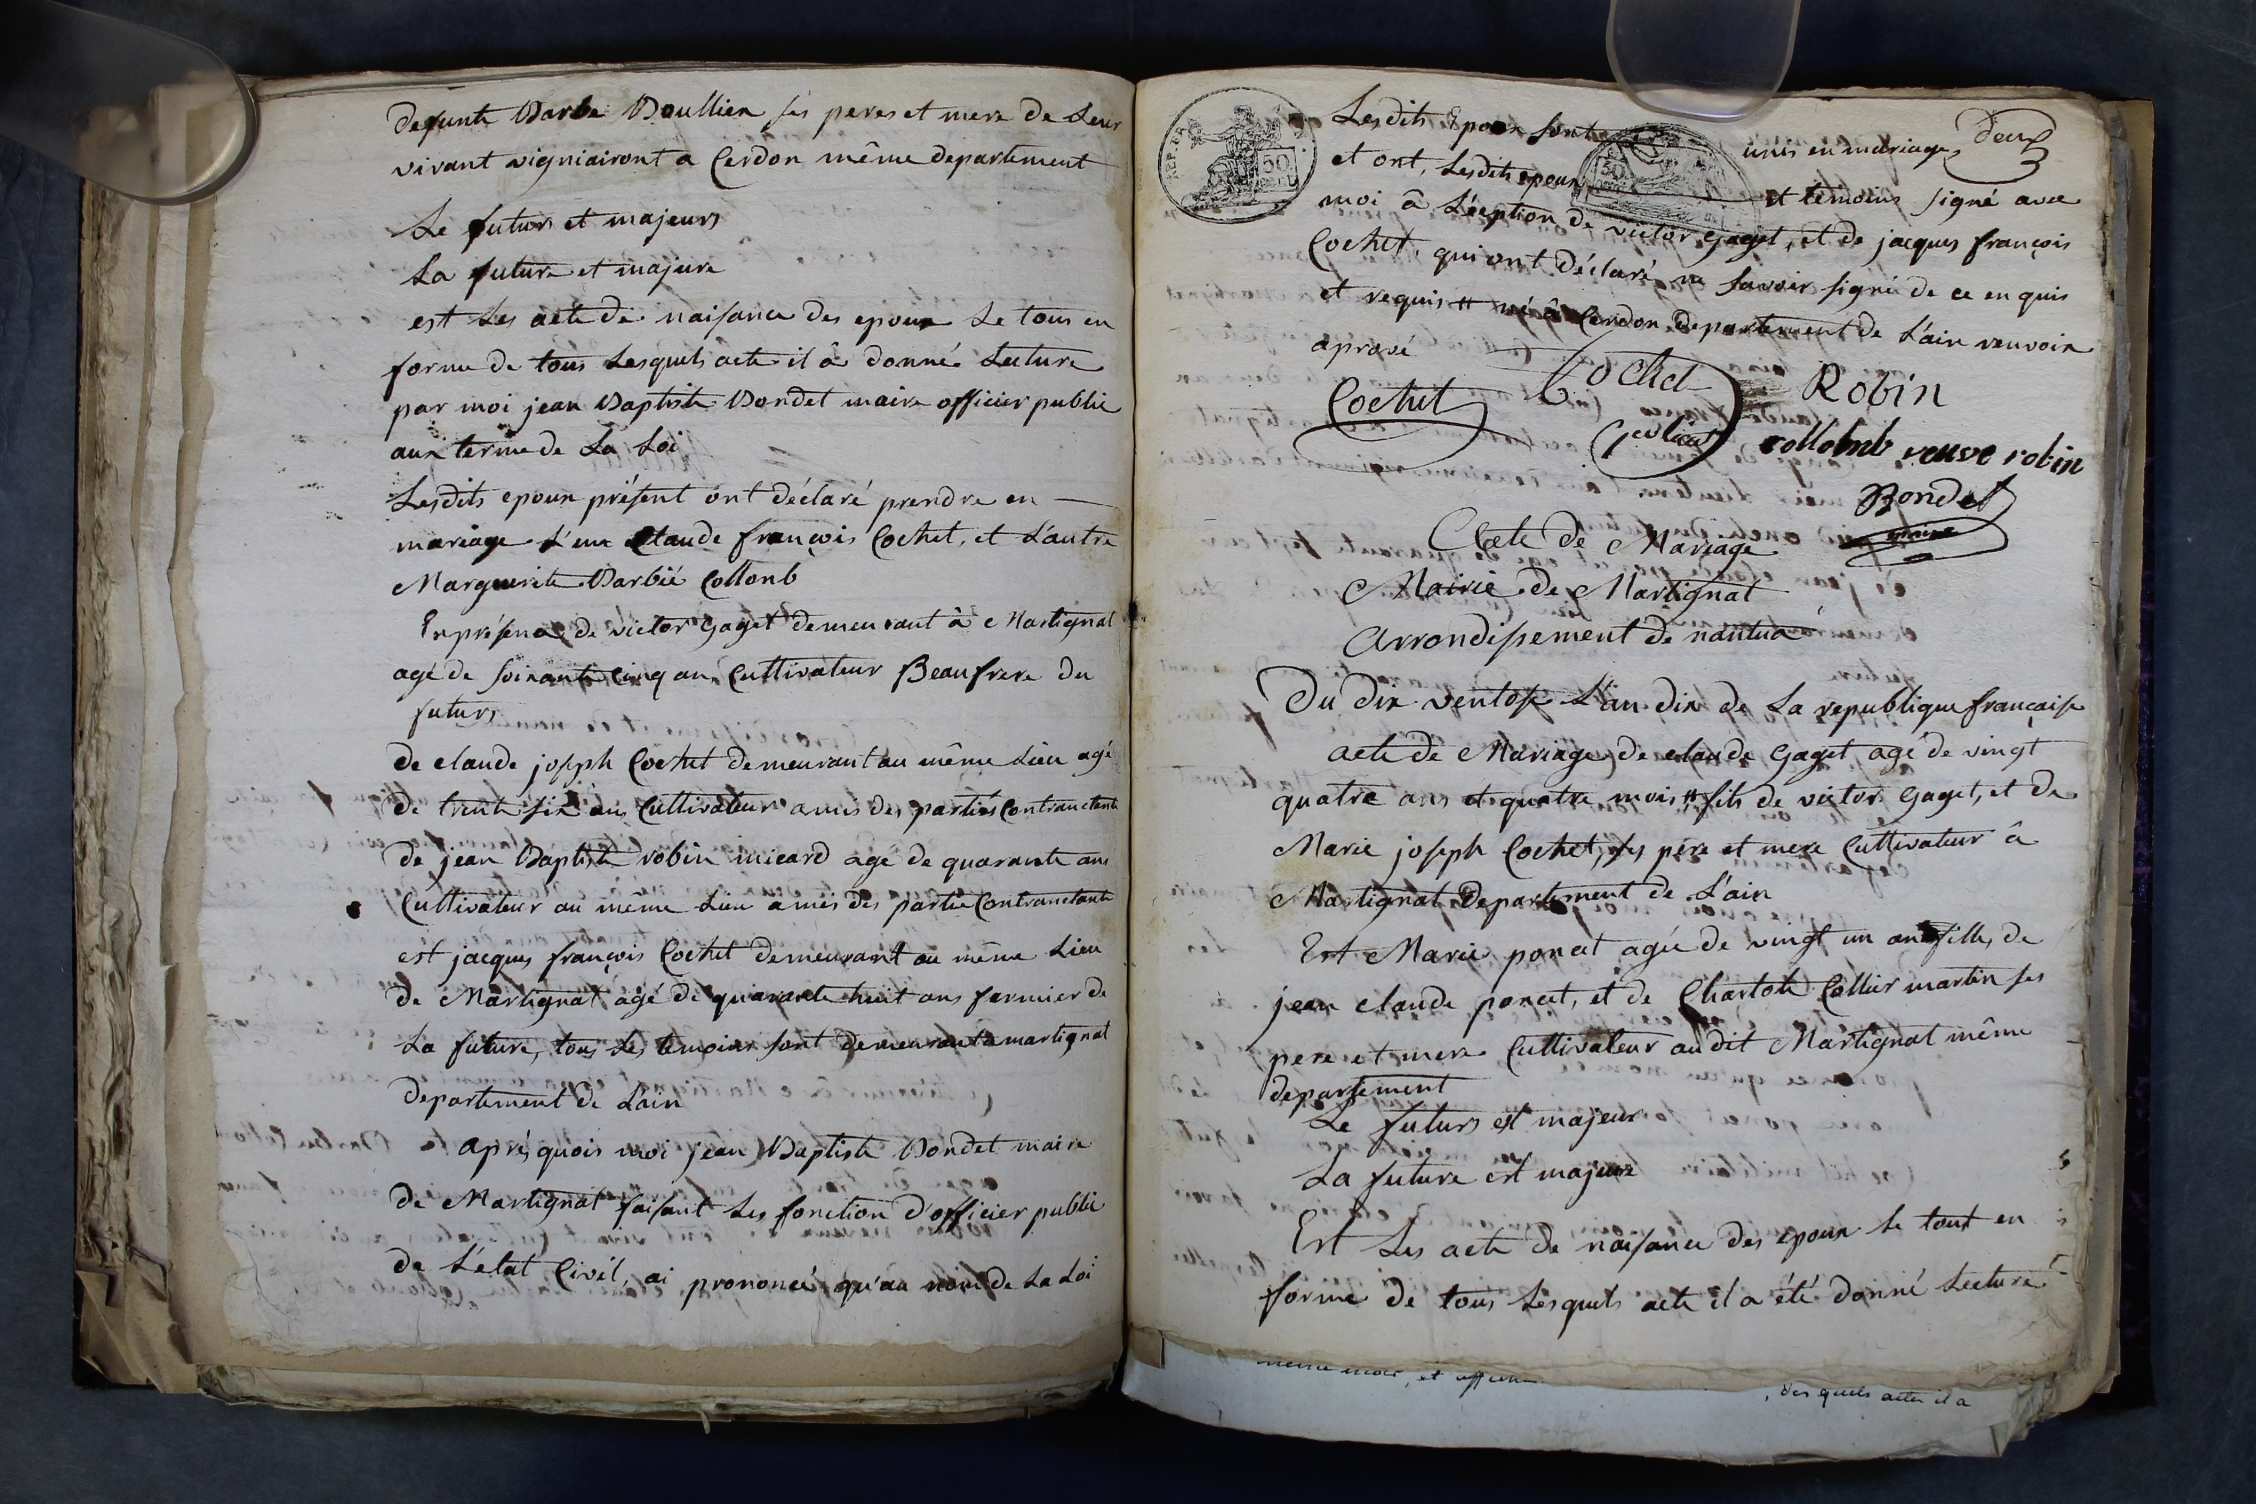 defunte Barbe Boullier ses peres et mere de Leur
vivant vigniairont a Cerdon même departement
Le futurs et majeurs
La future et majure
est Les acte de naissance des epoux Le tous en
forme de tous Lesquels acte il â donné Lecture
par moi jean Baptiste Bondet maire officier public
aux terme de La Loi
Lesdits epoux présent ont déclaré prendre en
mariage L'un Claude françois Cochet, et L'autre
Marguerite Barbié Collonb
En présence de victor Gaget demeurant â Martignat
agé de soixante Cinq ans Cultivateur Beaufrere du
futurs
de claude joseph Cochet demeurant au même Lieu agé
de trente six ans Cultivateur amis des parties Contranctante
de jean Baptiste robin micard agé de quarante ans
Cultivateur au meme Lieu amis des partie Contranctante
est jacques françois Cochet demeurant au même Lieu
de Martignat agé de quarante huit ans fermier de
La future, tous Les temoins sont demeurant a martignat
departement de L'ain
après quois moi jean Baptiste Bondet maire
de Martignat faisant Les fonction d'officier public
de L'état Civil, ai prononcé qu'au nom de La Loi
deux
REP. FR.
50
Lesdits Epoux sont unis en mariage
et ont, Lesdits epoux et temoins signé avec
moi â L'éeption de victor Gaget, et de jacques françois
Cochet, qui ont déclaré ne savoir signé de ce en quis
et requis # né â Cerdon departement de L'ain renvoix
aprové
Cochet Cochet Robin
collomb veuve robin
Bondet
maire
Acte de Mariage
Mairie de Martignat
Arrondissement de nantua
Du dix ventose L'an dix de La republique française
acte de Mariage de claude Gaget agé de vingt
quatre ans et quatre mois # fils de victor Gaget, et de
Marie joseph Cochet, ses pére et mere Cultivateur â
Martignat Departement de L'ain
Est Marie poncet agée de vingt un ans fille, de
jean claude poncet, et de Charlote Collier martin ses
pere et mere Cultivateur audit Martignat même
departement
Le futurs est majeur
La future est majeure
Est Les acte de naissance des epoux Le tout en
forme de tous Lesquels acte il a été donné Lecture
, des quels actes il a